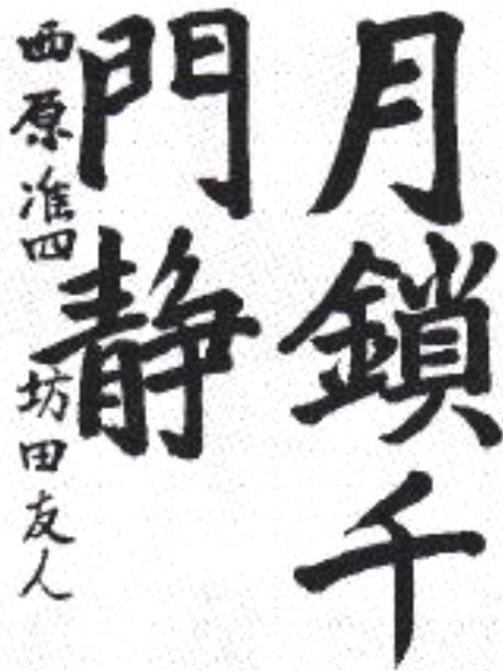 月鎖千
門静
西原准四 坊田友人